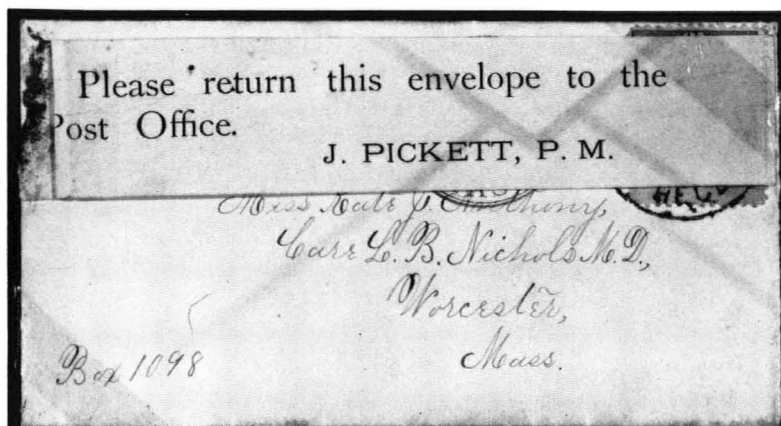 Please return this envelope to the
Post Office.
J. PICKETT, P. M.
Miss Kate J. Anthony,
Care L. B. Nichols M. D.,
Worcester,
Mass.
Box 1098